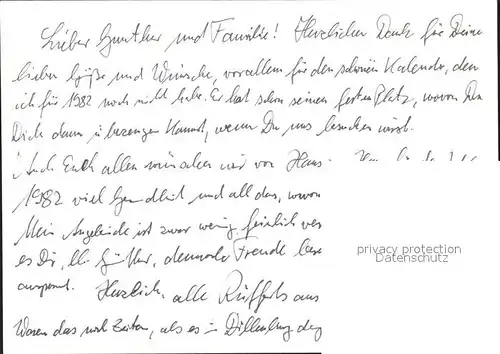 Lieber Gunther und Familie! Herzlichen Dank für Deine
lieben Grüße und Wünsche, vor allem für den schönen Kalender, den
ich für 1982 noch nicht habe. Er hat schon seinen festen Platz, wovon Du
Dich dann überzeugen kannst, wenn Du uns besuchen wirst.
Auch Euch allen wünschen wir von
1982 viel Gesundheit und all das, wovon
Mein ist zwar wenig
es Dir, lb. Günther, dennoch Freude
Herzlich, alle aus
Waren das noch Zeiten, als es in Dillenburg
privacy protection
Datenschutz